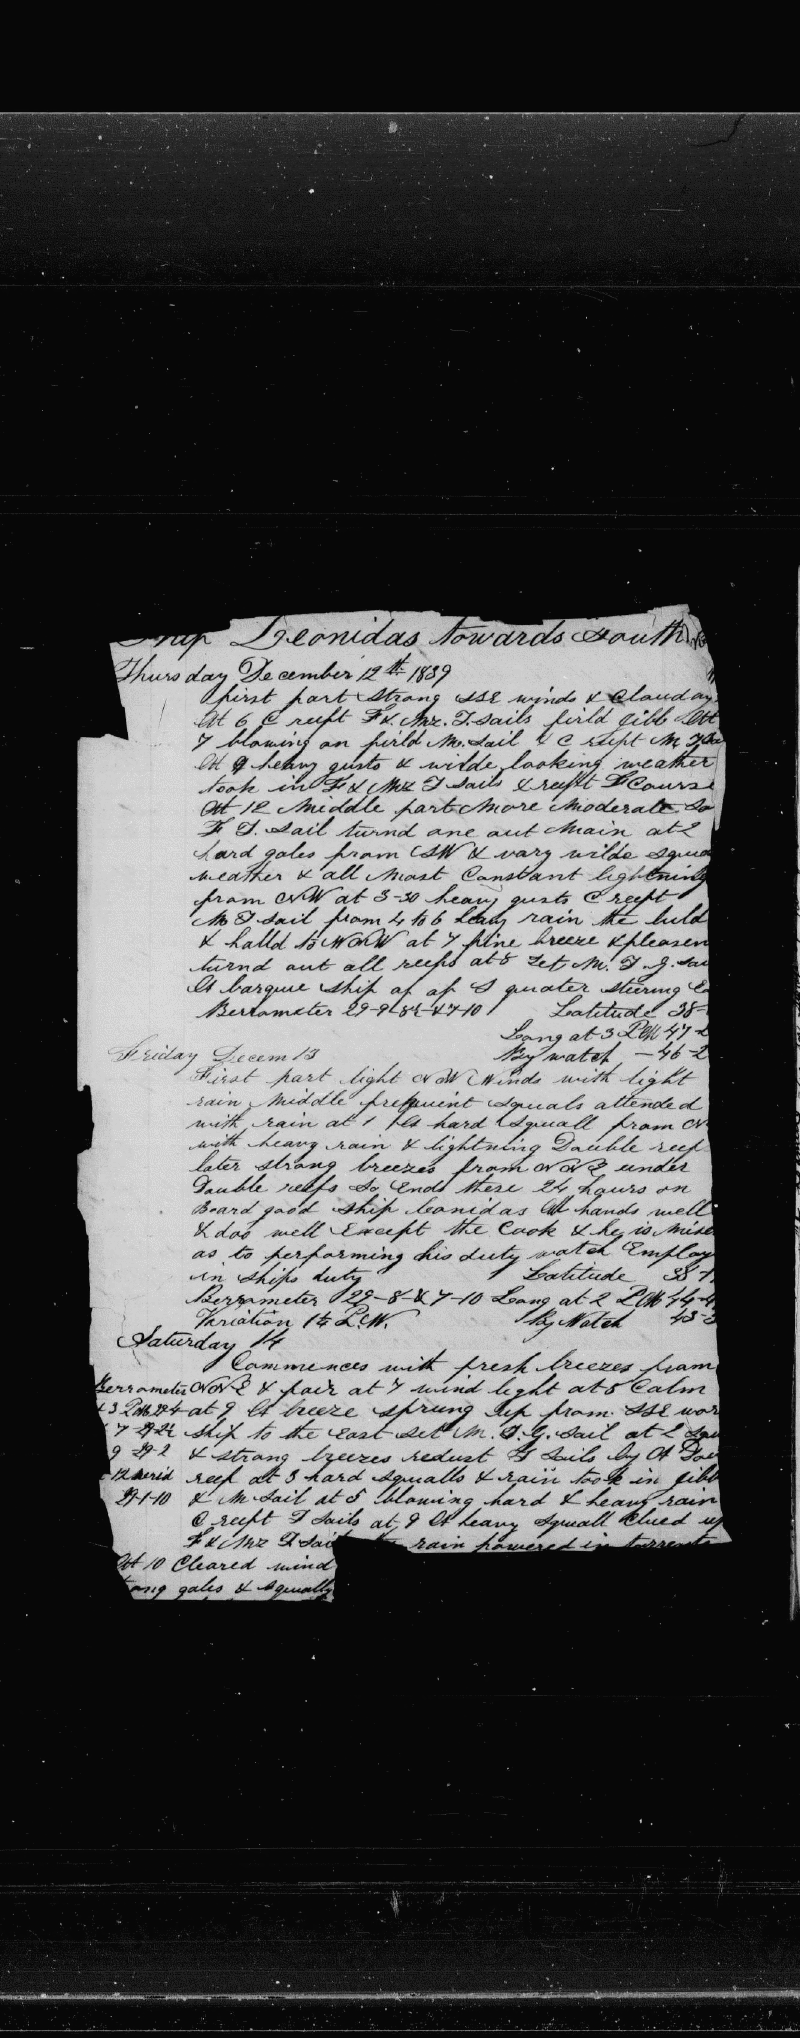 Ship Leonidas towards South
Thursday December 12th 1839
first part strong SSE winds & Clouday
At 6 C reeft F & Mz. T. sails firld gibb At
7 blowing on firld M. sail & C reeft M T
At 9 heavy gusts & wilde looking weather
took in F & Mz T sails & reeft F Course
At 12 Middle part More Moderate So
F T. Sail turnd one out Main at 2
hard gales from SW & vary wilde squa
weather & all Most Constant lightning
from NW at 3-30 heavy gusts C reeft
M T sail from 4 to 6 heavy rain the
& halld to WNW at 7 fine breeze & pleasen
turnd out all reefs at 8 set M. T. G. sai
A barque ship of S quater steering E
Berrometer 29-9- Latitude 38-
Long at 3 PM 47-
By watch - 46-2
Friday Decem 13
First part light NW Winds with light
rain Middle frequent squals attended
with rain at 1 hard squall from N
with heavy rain & lightning Double reef
later strong breezes from NNE under
Double reefs So Ends these 24 hours on
Board good ship Leonidas All hands well
& doo well Except the Cook & he is mise
as to performing his duty watch Employ
in ships duty Latitude 38-
Berrometer 29-8-& 7-10 Long at 2 PM 44-4
Variation P.W. By Watch 43-3
Saturday 14
Commences with fresh breezes from
Berrometer NNE & fair at 7 wind light at 8 Calm
at 9 A breeze sprung up from SSE wor
ship to the East set M. T. G. Sail at 2 squ
9 29-2 & strong breezes redust T Sails by A Dou
12 merid reef at 3 hard squalls & rain took in gibb
29-1-10 & M. sail at 5 blowing hard & heavy rain
C reeft T sails at 9 A heavy squall Clued up
F & Mz T Sail rain powered in torrents
At 10 Cleared wind
gales & squally